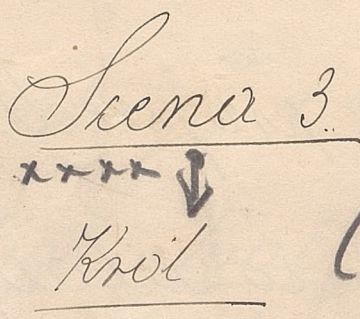 Scena 3.
xxxx
Król